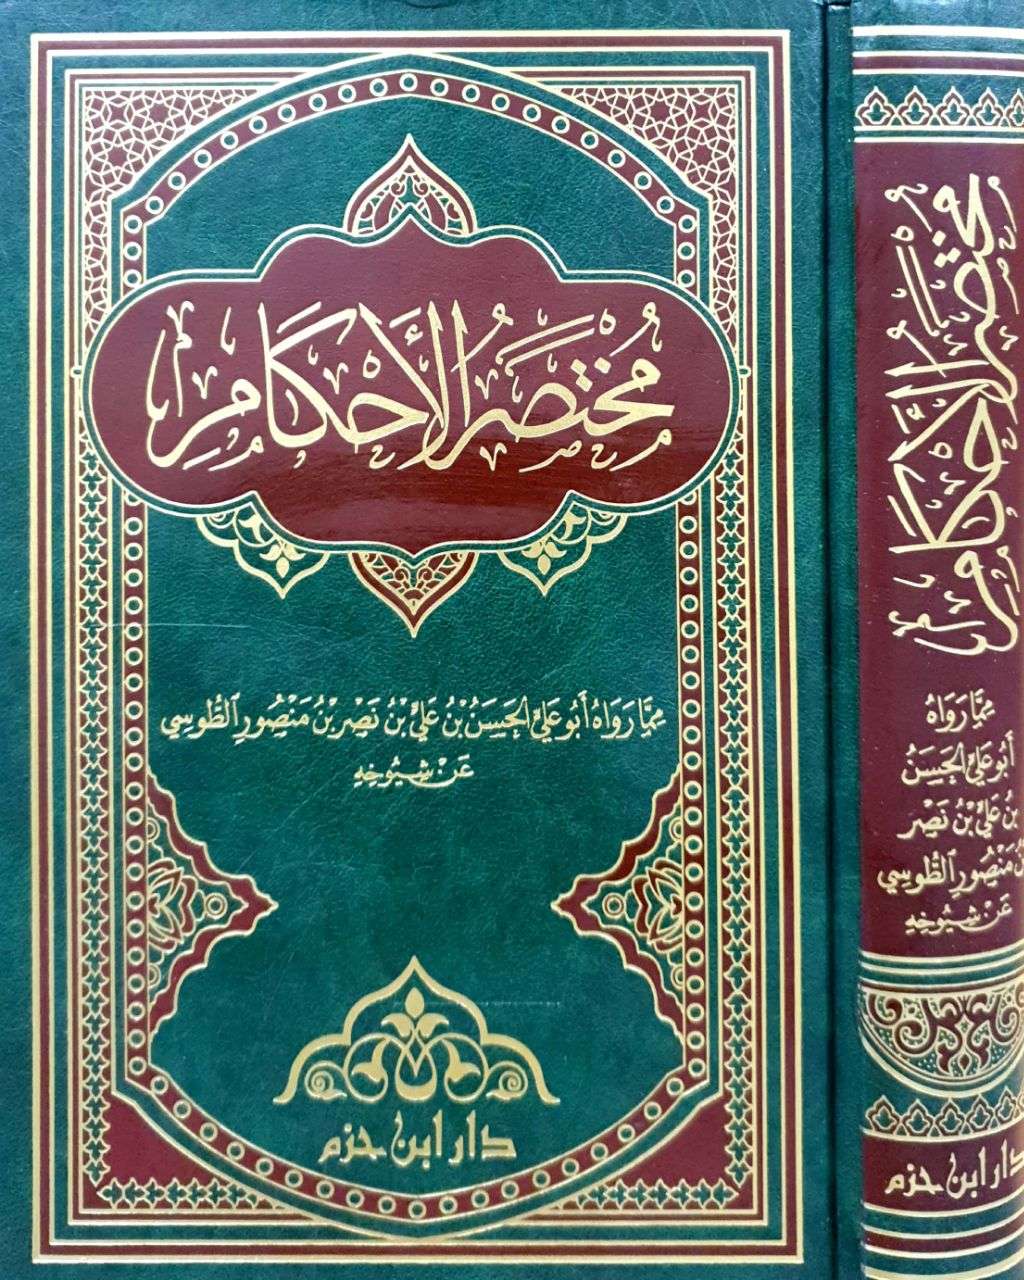 مُخْتَصَرُ الأَحْكَامِ
مِمَّا رَوَاهُ أَبُو عَلِيٍّ الحَسَنُ بْنُ عَلِيِّ بْنِ نَصْرِ بْنِ مَنْصُورٍ الطُّوسِي
عَنْ شُيُوخِهِ
دار ابن حزم
مختصر الأحكام
مِمَّا رَوَاهُ
أَبُو عَلِيٍّ الحَسَنُ
بْنُ عَلِيِّ بْنِ نَصْرِ
بْنِ مَنْصُورٍ الطُّوسِي
عَنْ شُيُوخِهِ
دار ابن حزم